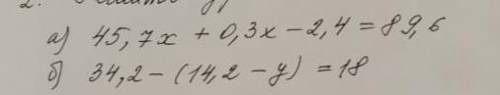 2.
а) 45,7x + 0,3x - 2,4 = 89,6
б) 34,2 - (14,2 - y) = 18